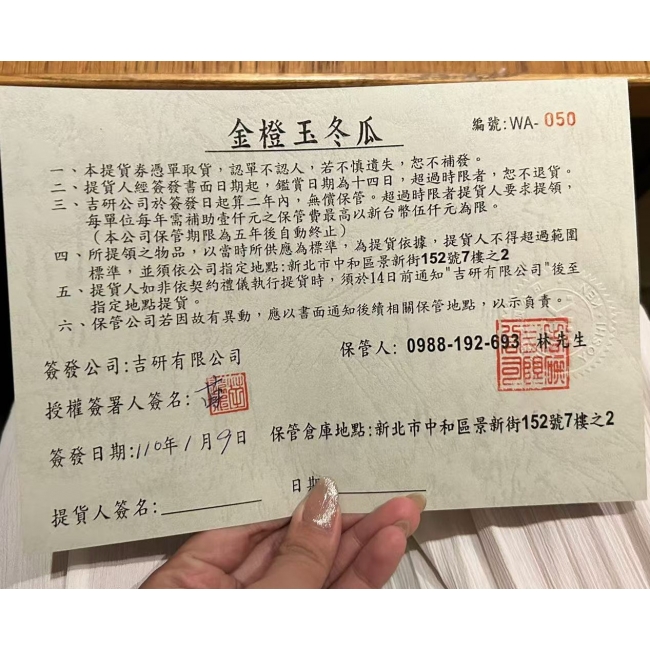 金橙玉冬瓜
編號:WA-050
一、本提貨券憑單取貨，認單不認人，若不慎遺失，恕不補發。
二、提貨人經簽發書面日期起，鑑賞日期為十四日，超過時限者，恕不退貨。
三、吉研公司於簽發日起算二年內，無償保管。超過時限者提貨人要求提領，
每單位每年需補助壹仟元之保管費最高以新台幣伍仟元為限。
（本公司保管期限為五年後自動終止）
四、所提領之物品，以當時所供應為標準，為提貨依據，提貨人不得超過範圍
標準，並須依公司指定地點:新北市中和區景新街152號7樓之2
五、提貨人如非依契約禮儀執行提貨時，須於14日前通知"吉研有限公司"後至
指定地點提貨。
六、保管公司若因故有異動，應以書面通知後續相關保管地點，以示負責。
簽發公司:吉研有限公司
保管人：0988-192-693 林先生
授權簽署人簽名:
簽發日期:110年1月9日
保管倉庫地點:新北市中和區景新街152號7樓之2
提貨人簽名:
日期